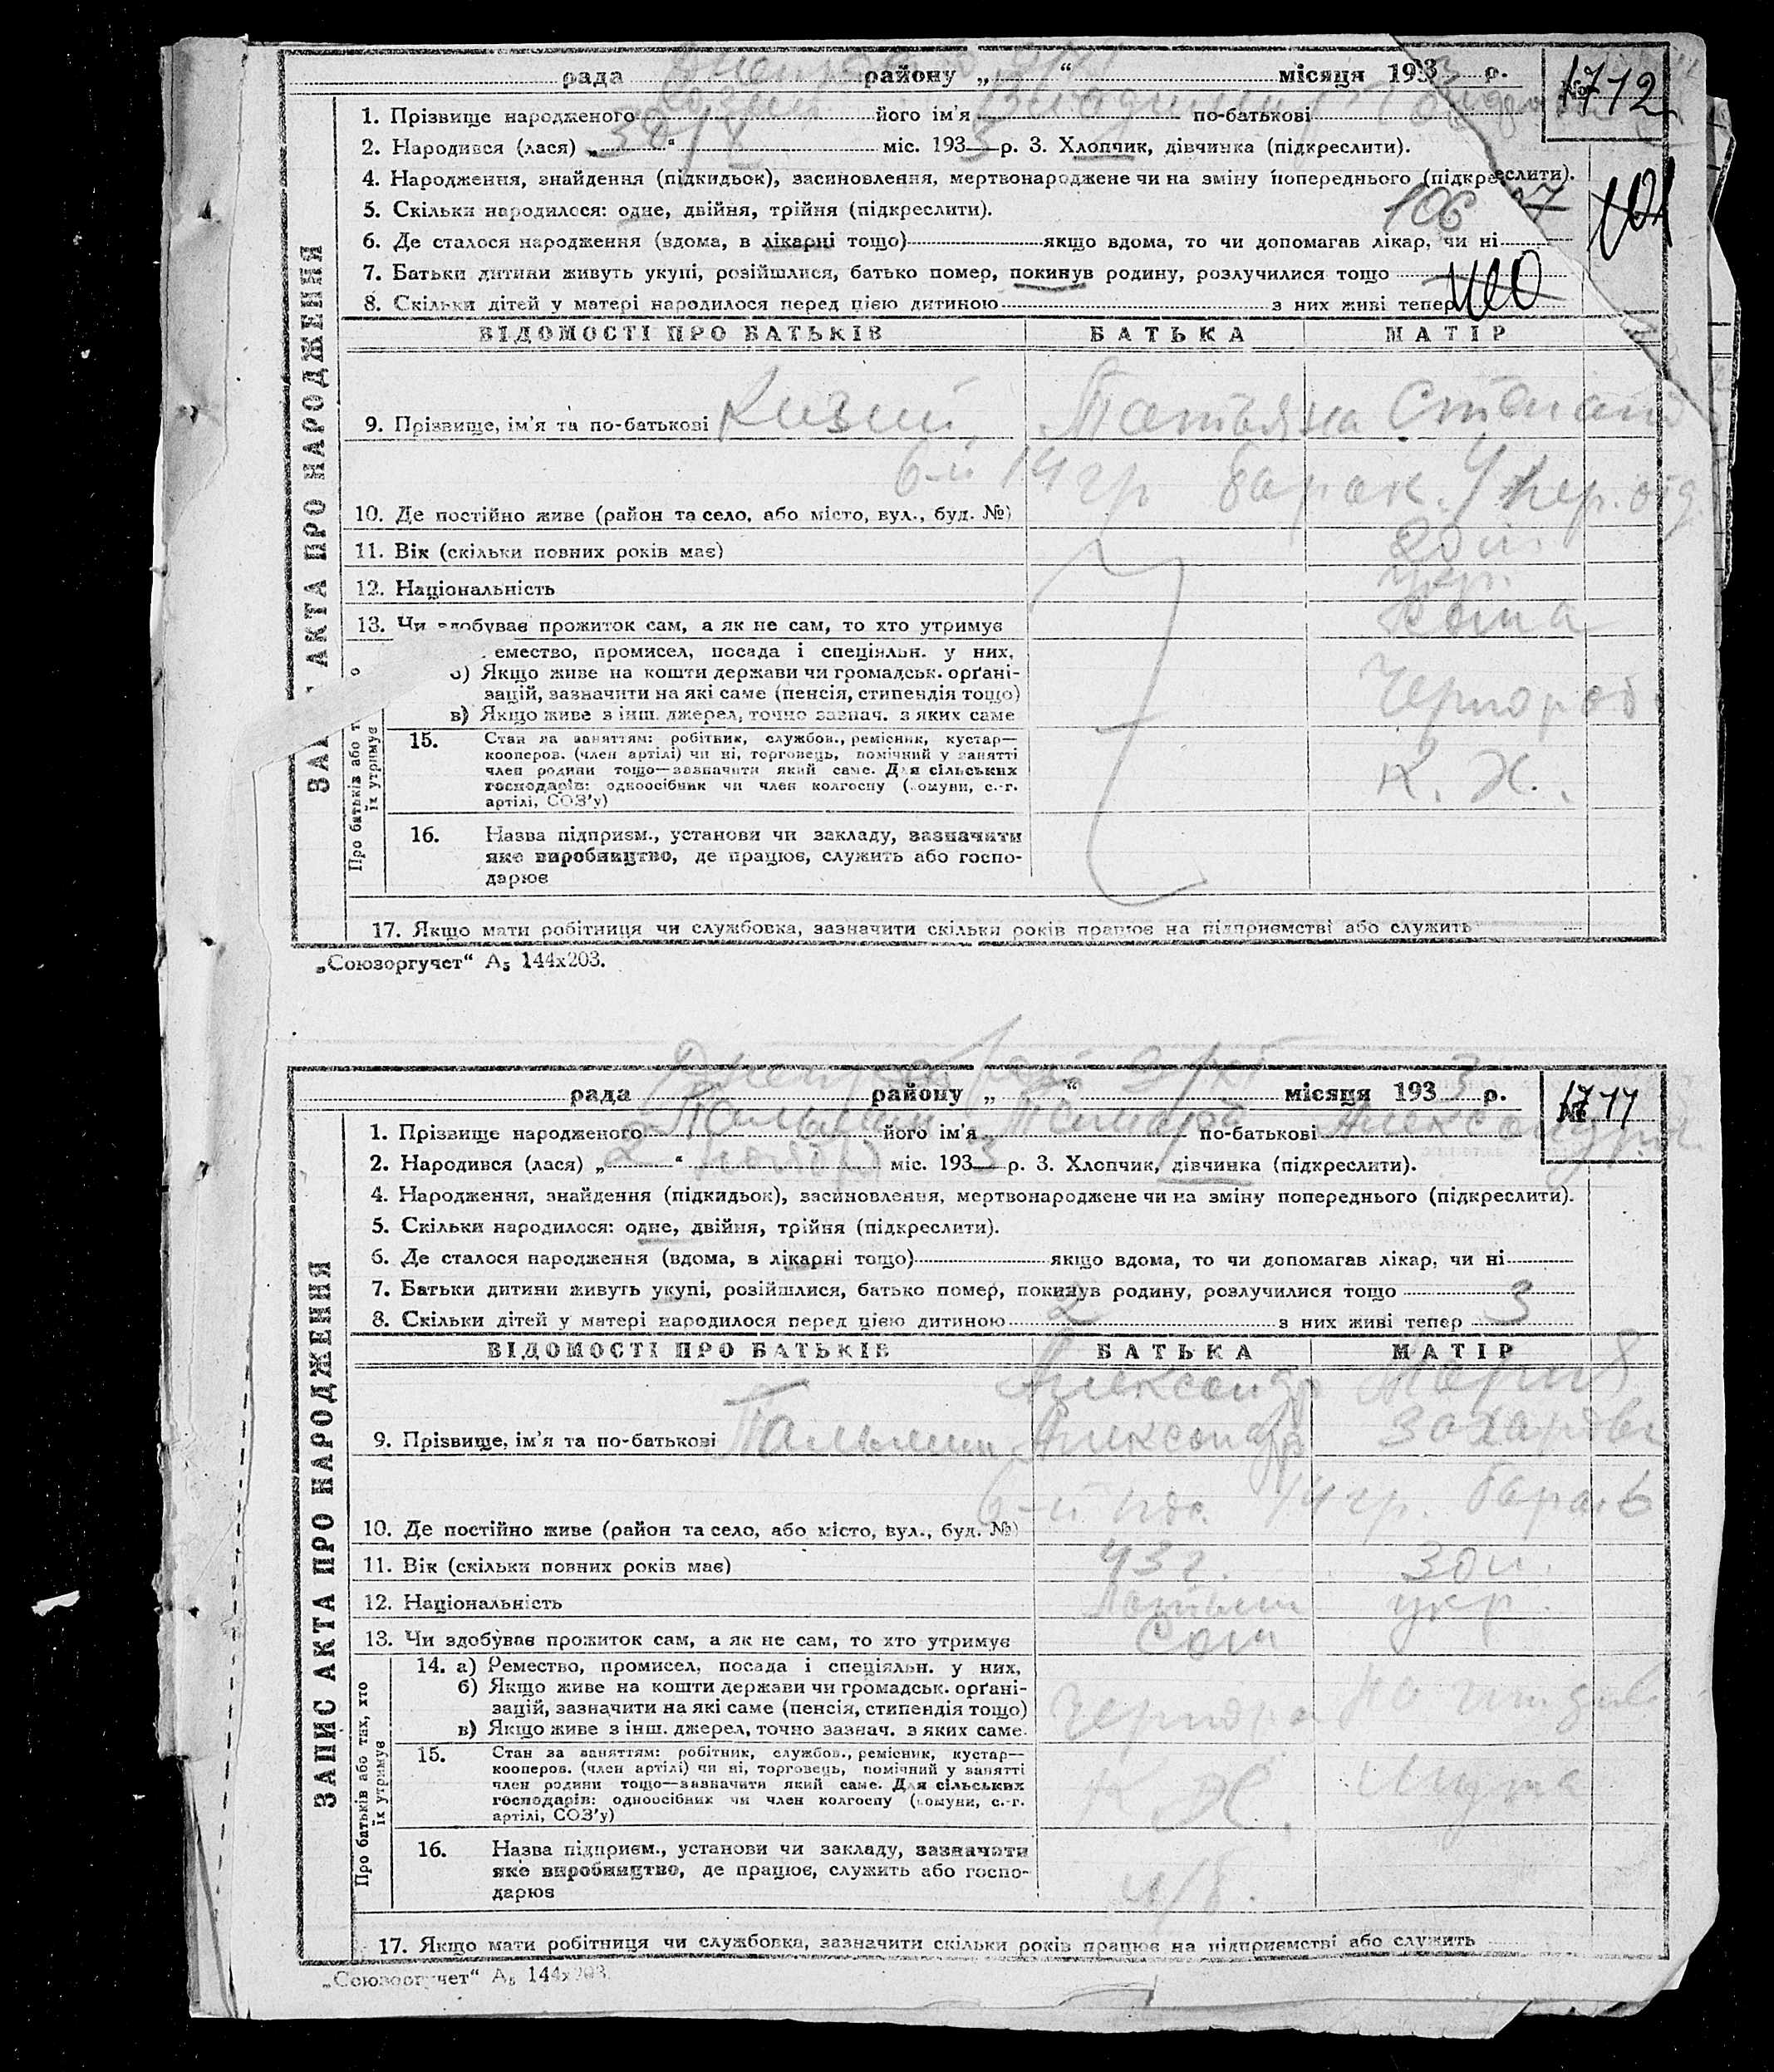 рада району „ “ місяця 1933 р. № 1712
1. Прізвище народженого його ім'я Владимир по-батькові
2. Народився (лася) „30/X“ міс. 1933 р. 3. Хлопчик, дівчинка (підкреслити).
4. Народження, знайдення (підкидьок), засиновлення, мертвонароджене чи на зміну попереднього (підкреслити).
5. Скільки народилося: одне, двійня, трійня (підкреслити). 106
6. Де сталося народження (вдома, в лікарні тощо) якщо вдома, то чи допомагав лікар, чи ні
7. Батьки дитини живуть укупі, розійшлися, батько помер, покинув родину, розлучилися тощо
8. Скільки дітей у матері народилося перед цією дитиною з них живі тепер
ВІДОМОСТІ ПРО БАТЬКІВ БАТЬКА МАТІР
9. Прізвище, ім'я та по-батькові Кизий Татьяна
6-й 14 гр барак. 4
10. Де постійно живе (район та село, або місто, вул., буд. №)
11. Вік (скільки повних років має)
12. Національність укр.
13. Чи здобуває прожиток сам, а як не сам, то хто утримує сама
емество, промисел, посада і спеціяльн. у них,
б) Якщо живе на кошти держави чи громадськ. орґані-
зацій, зазначити на які саме (пенсія, стипендія тощо) Чернораб.
в) Якщо живе з інш. джерел, точно зазнач. з яких саме
15. Стан за заняттям: робітник, службов., ремісник, кустар—
кооперов. (член артілі) чи ні, торговець, помічний у занятті
член родини тощо—зазначити який саме. Для сільських К. Х.
господарів: одноосібник чи член колгоспу (комуни, с.-г.
артілі, СОЗ'у)
16. Назва підприєм., установи чи закладу, зазначити
яке виробництво, де працює, служить або госпо-
дарює
17. Якщо мати робітниця чи службовка, зазначити скільки років працює на підприємстві або служить
Про батьків або т
їх утримує
АКТА ПРО НАРОДЖЕННЯ
„Союзоргучет“ А5 144х203.
рада району „ “ місяця 1933 р. №
1. Прізвище народженого його ім'я Тамара по-батькові Александр.
2. Народився (лася) „2“ ноября міс. 1933 р. 3. Хлопчик, дівчинка (підкреслити).
4. Народження, знайдення (підкидьок), засиновлення, мертвонароджене чи на зміну попереднього (підкреслити).
5. Скільки народилося: одне, двійня, трійня (підкреслити).
6. Де сталося народження (вдома, в лікарні тощо) якщо вдома, то чи допомагав лікар, чи ні
7. Батьки дитини живуть укупі, розійшлися, батько помер, покинув родину, розлучилися тощо
8. Скільки дітей у матері народилося перед цією дитиною 2 з них живі тепер 3
ВІДОМОСТІ ПРО БАТЬКІВ БАТЬКА МАТІР
Александр Мария
9. Прізвище, ім'я та по-батькові Александр Захаровн
6-й 14 гр. барак 6
10. Де постійно живе (район та село, або місто, вул., буд. №)
11. Вік (скільки повних років має) 43 г. 30 л.
12. Національність укр.
13. Чи здобуває прожиток сам, а як не сам, то хто утримує сам
14. а) Ремество, промисел, посада і спеціяльн. у них,
б) Якщо живе на кошти держави чи громадськ. орґані-
зацій, зазначити на які саме (пенсія, стипендія тощо) Чернора на иждив
в) Якщо живе з інш. джерел, точно зазнач. з яких саме
15. Стан за заняттям: робітник, службов., ремісник, кустар—
кооперов. (член артілі) чи ні, торговець, помічний у занятті
член родини тощо—зазначити який саме. Для сільських К Х. мужа
господарів: одноосібник чи член колгоспу (комуни, с.-г.
артілі, СОЗ'у)
16. Назва підприєм., установи чи закладу, зазначити
яке виробництво, де працює, служить або госпо-
дарює
17. Якщо мати робітниця чи службовка, зазначити скільки років працює на підприємстві або служить
Про батьків або тих, хто
їх утримує
ЗАПИС АКТА ПРО НАРОДЖЕННЯ
„Союзоргучет“ А5 144х203.